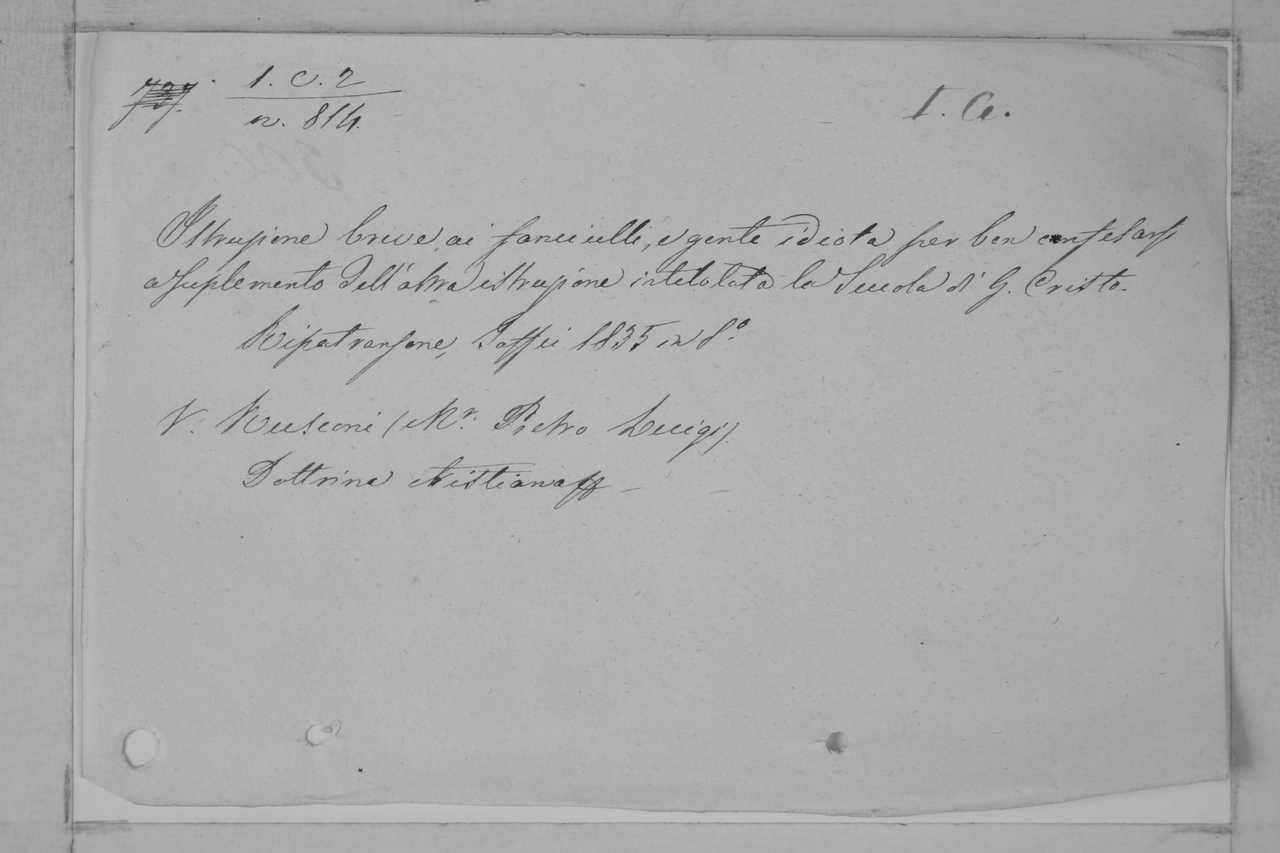 737. 1. C. 2
n. 814.
I. C.
Istruzione breve ai fanciulli, e gente idiota per ben confesarsi
a suplemento dell'altra istruzione intitolata la Scuola di G. Cristo.
Ripatransone, Jaffei 1835 in 8.º
V. Rusconi (Mr. Pietro Luigi)
Dottrina cristiana